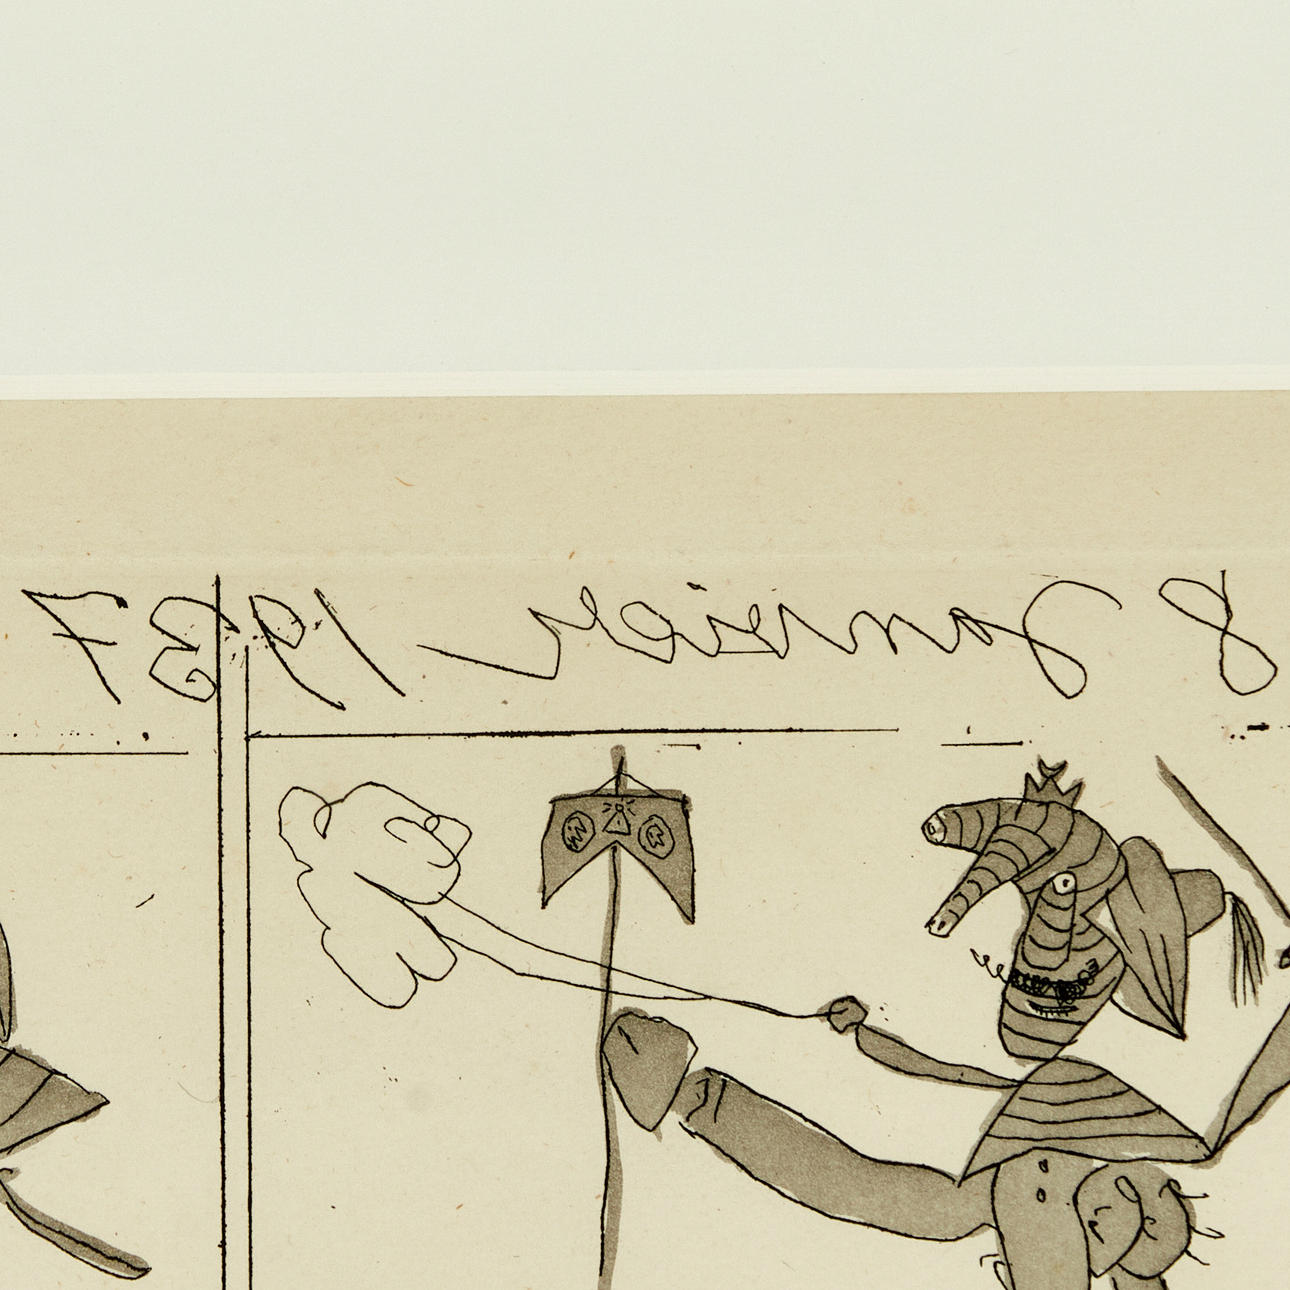 8 Janvier 1937